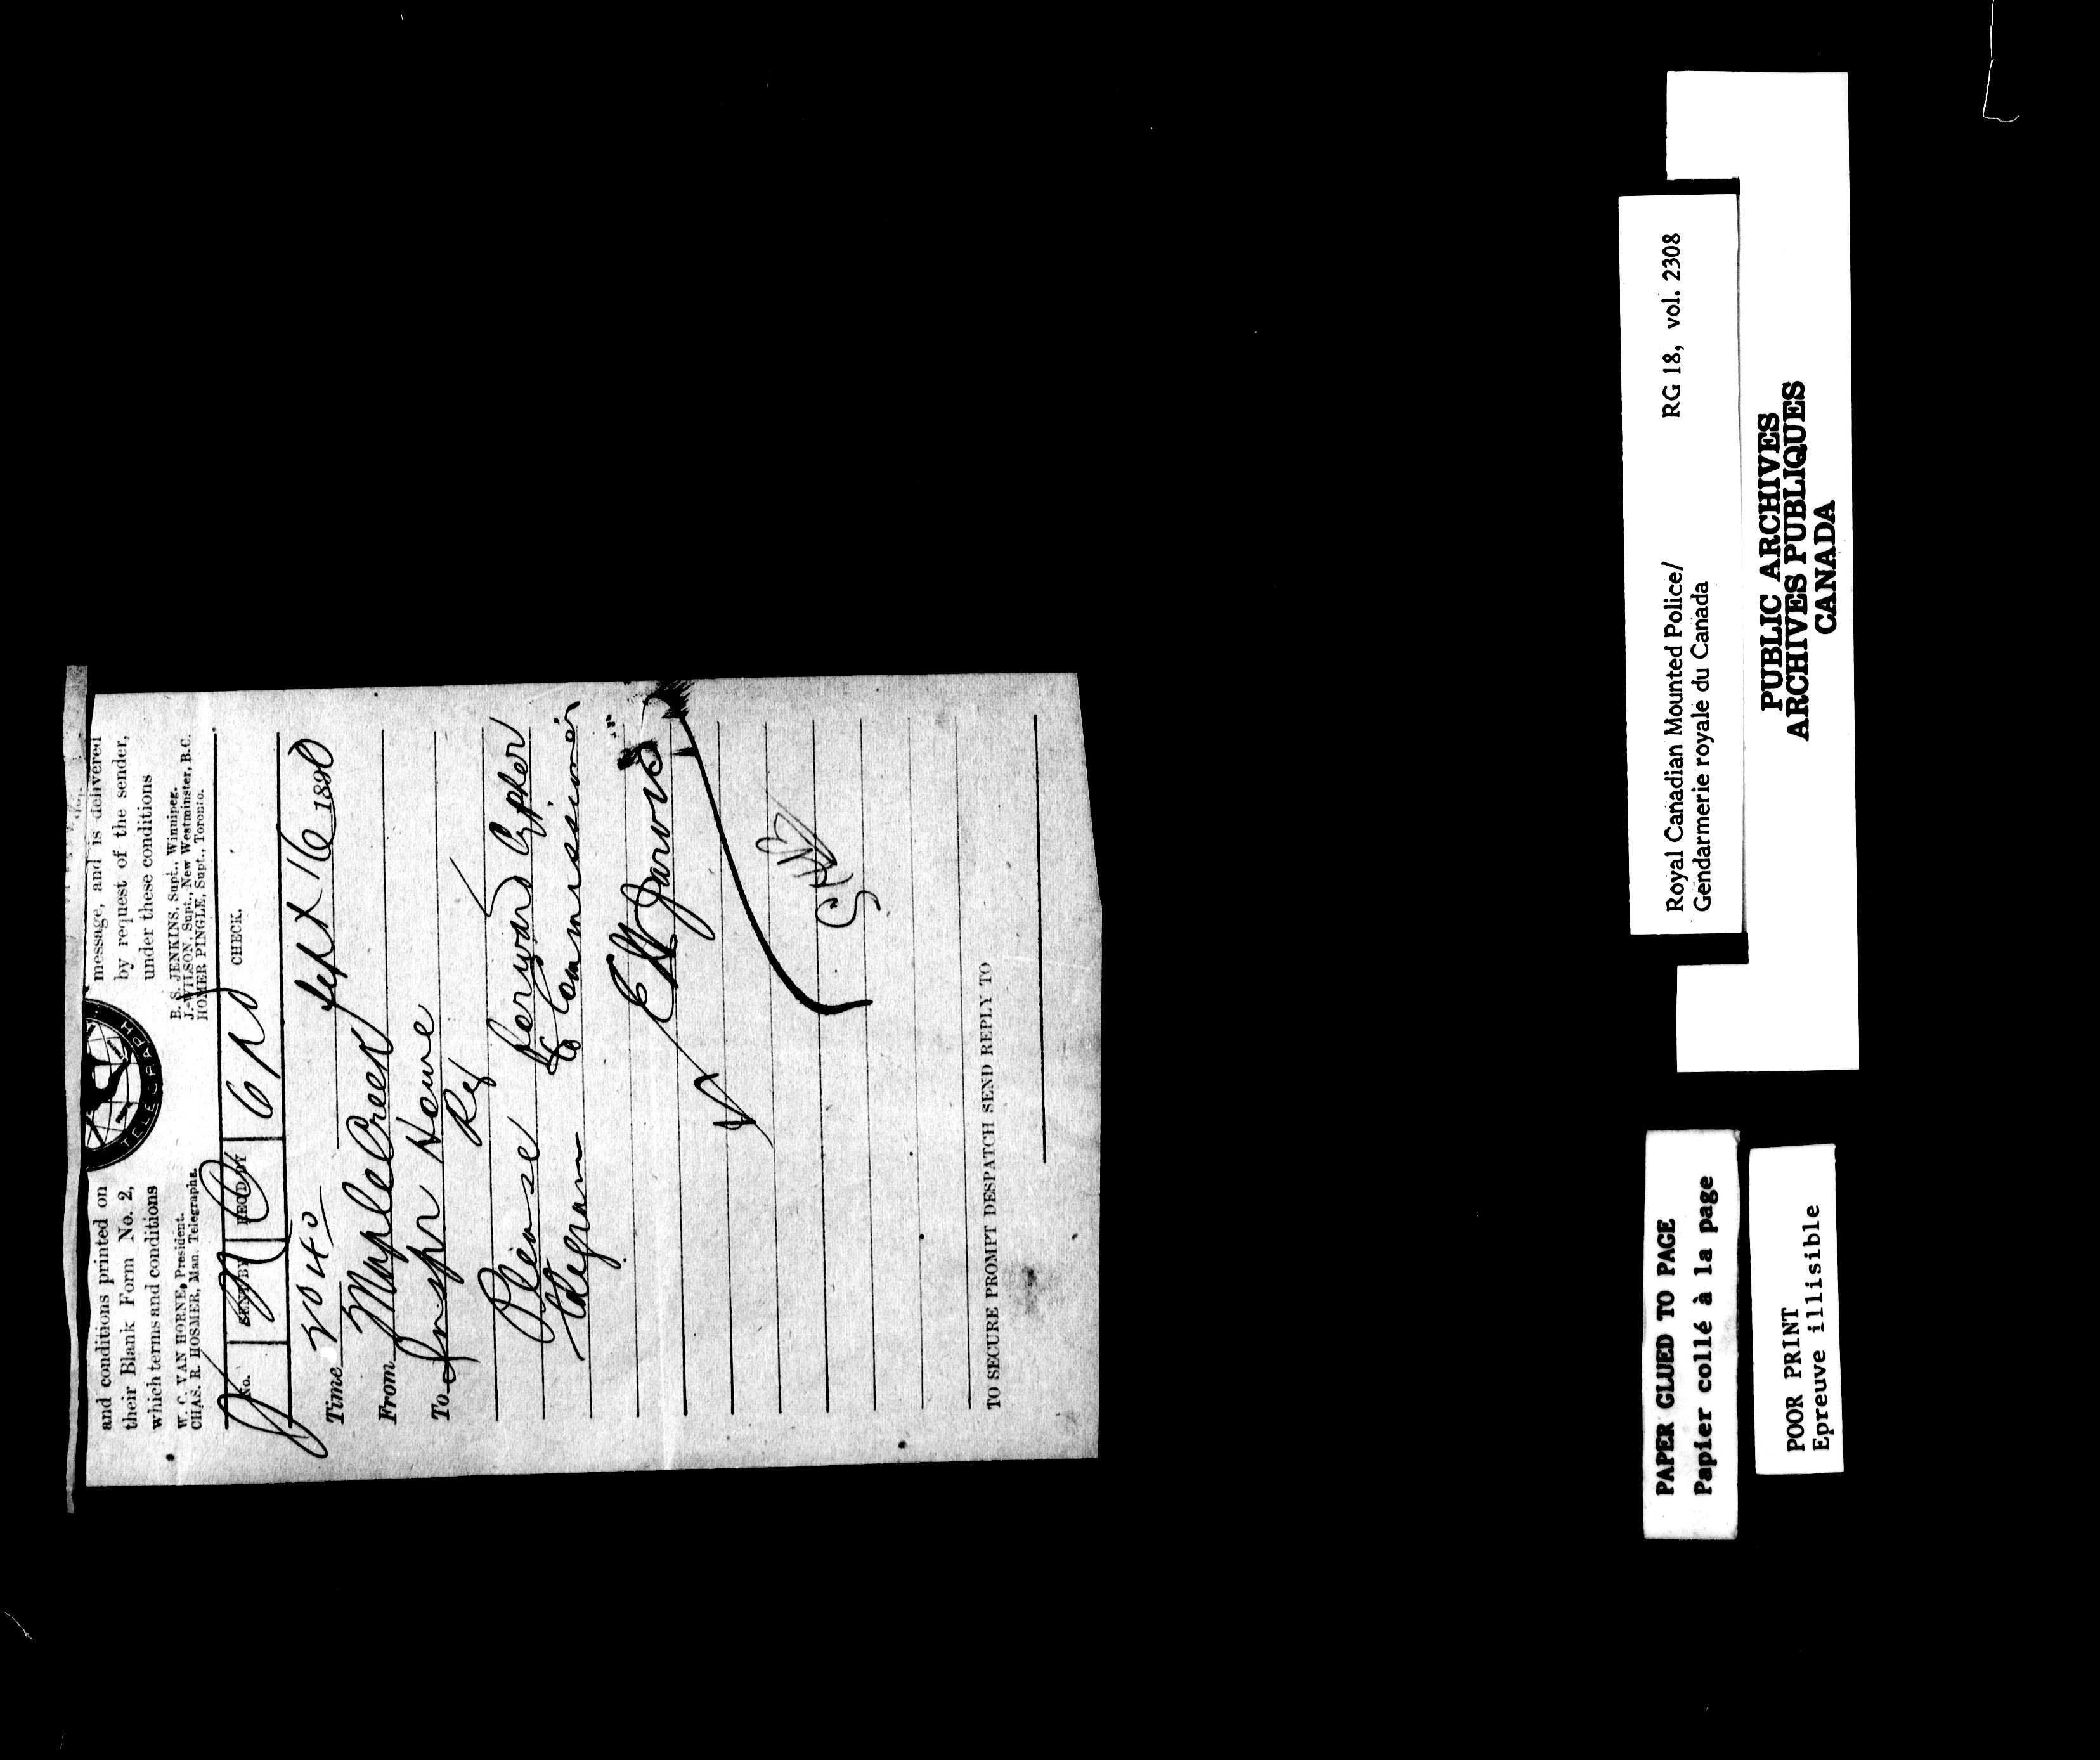 and conditions printed on
their Blank Form No. 2,
which terms and conditions
message, and is delivered
by request of the sender,
under these conditions
TELEGRAPH
W. C. VAN HORNE, President.
CHAS. R. HOSMER, Man. Telegraphs.
B. S. JENKINS, Supt., Winnipeg.
J. WILSON, Supt., New Westminster, B.C.
HOMER PINGLE, Supt., Toronto.
No. SENT BY REC'D BY CHECK.
Time Sept 16 1890
From Maple Creek
To Inspr Howe
Reg
Please forward Cypher
telegram to Commissioner
E W Jarvis
TO SECURE PROMPT DESPATCH SEND REPLY TO
Royal Canadian Mounted Police/ RG 18, vol. 2308
Gendarmerie royale du Canada
PUBLIC ARCHIVES
ARCHIVES PUBLIQUES
CANADA
PAPER GLUED TO PAGE
Papier collé à la page
POOR PRINT
Epreuve illisible